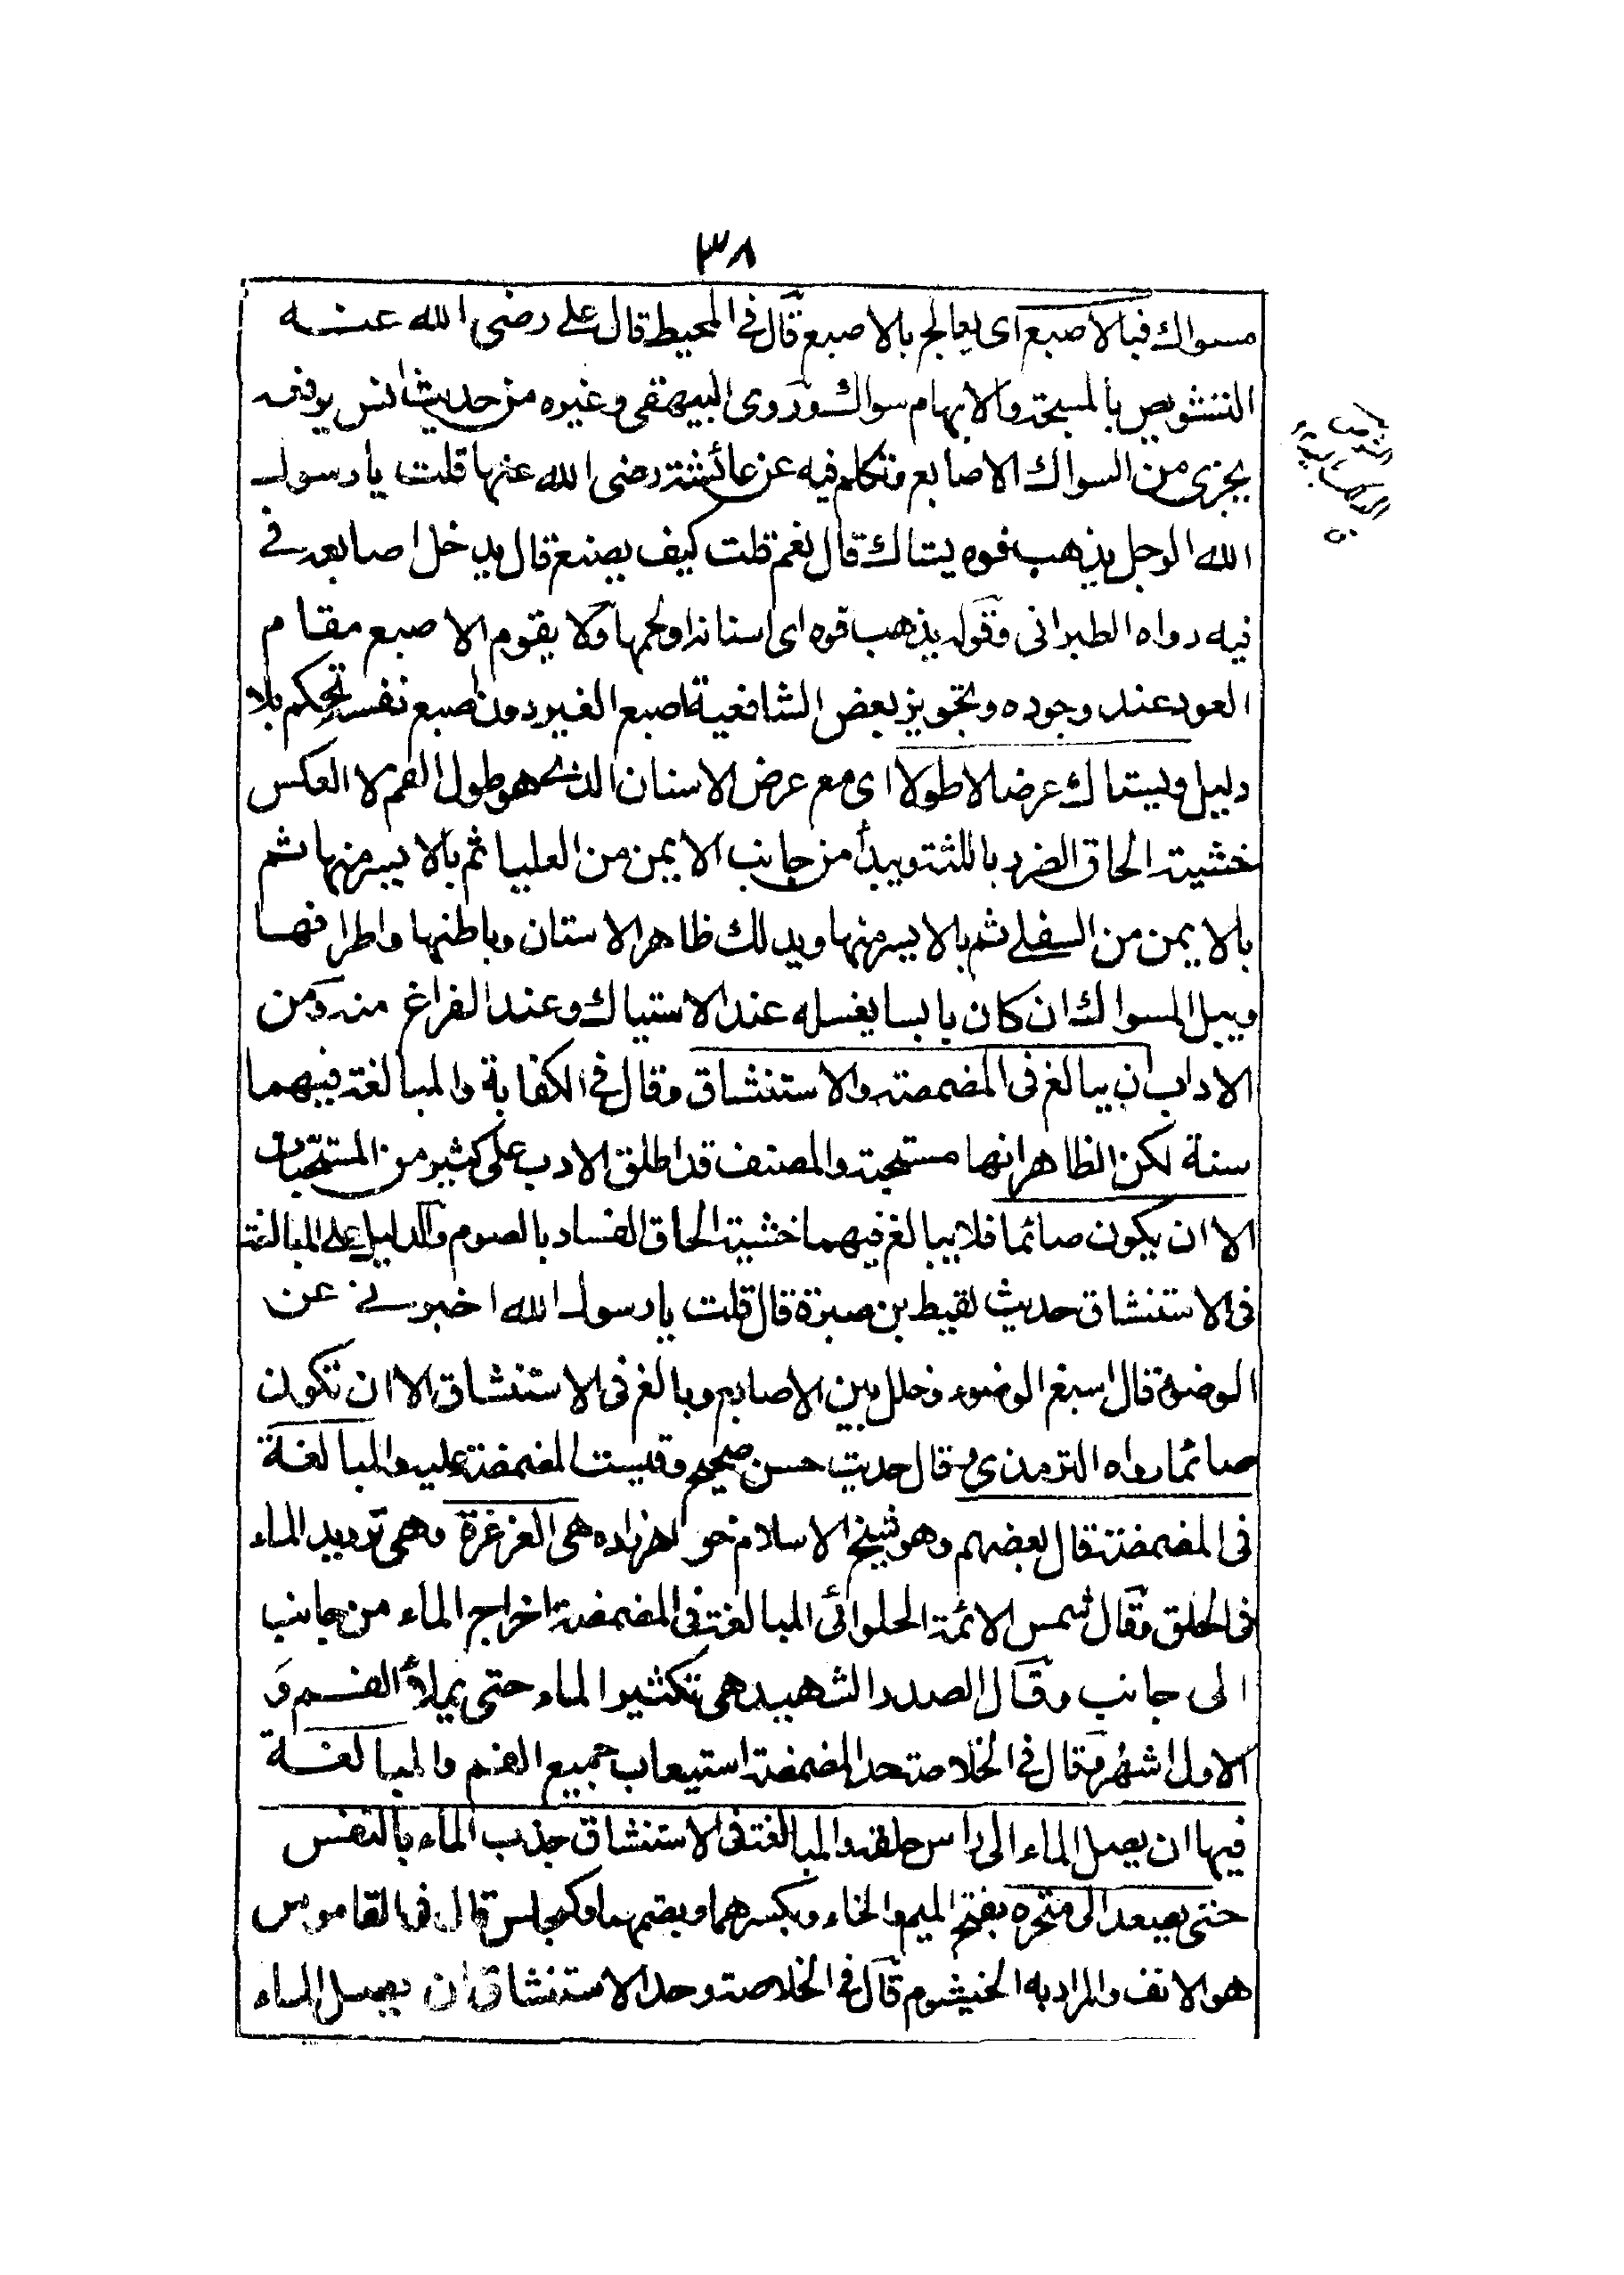 ٣٨
مسواك فبالاصبع اى يعالج بالاصبع قال فى المحيط قال على رضى الله عنه
التشويص بالمسبحة والابهام سواك وروى البيهقى وغيره من حديث انس يرفعه
يجزى من السواك الاصابع وتكلم فيه عن عائشة رضى الله عنها قلت يا رسول
الله الرجل يذهب فوه يستاك قال نعم قلت كيف يصنع قال يدخل اصابعه فى
فيه رواه الطبرانى وقوله يذهب فوه اى اسنانه او لحمها ولا يقوم الاصبع مقام
العود عند وجوده وتجويز بعض الشافعية اصبع الغير دون اصبع نفسه تحكم بلا
دليل ويستاك عرضا لا طولا اى مع عرض الاسنان الذى هو طول الفم لا العكس
خشية الحاق الضرر باللثة ويبدأ من جانب الايمن من العليا ثم بالايسر منها ثم
بالايمن من السفلى ثم بالايسر منها ويدلك ظاهر الاسنان وباطنها واطرافها
ويبل المسواك ان كان يابسا يغسله عند الاستياك وعند الفراغ منه ومن
الاداب ان يبالغ فى المضمضة والاستنشاق وقال فى الكفاية والمبالغة فيهما
سنة لكن الظاهر انها مستحبة والمصنف قد اطلق الادب على كثير من المستحبات
الا ان يكون صائما فلا يبالغ فيهما خشية الحاق الفساد بالصوم والدليل على المبالغة
فى الاستنشاق حديث لقيط بن صبرة قال قلت يا رسول الله اخبرنى عن
الوضوء قال اسبغ الوضوء وخلل بين الاصابع وبالغ فى الاستنشاق الا ان تكون
صائما رواه الترمذى وقال حديث حسن صحيح وقيست المضمضة عليه والمبالغة
فى المضمضة قال بعضهم وهو شيخ الاسلام خواهرزاده هى الغرغرة وهى ترديد الماء
فى الحلق وقال شمس الائمة الحلوائى المبالغة فى المضمضة اخراج الماء من جانب
الى جانب وقال الصدر الشهيد هى تكثير الماء حتى يملأ الفم و
الاول اشهر وقال فى الخلاصة حد المضمضة استيعاب جميع الفم والمبالغة
فيها ان يصل الماء الى راس حلقه والمبالغة فى الاستنشاق جذب الماء بالنفس
حتى يصعد الى منخره بفتح الميم والخاء وبكسرهما وبضمهما وكمجلس قال فى القاموس
هو الانف والمراد به الخيشوم قال فى الخلاصة وحد الاستنشاق ان يصل الماء